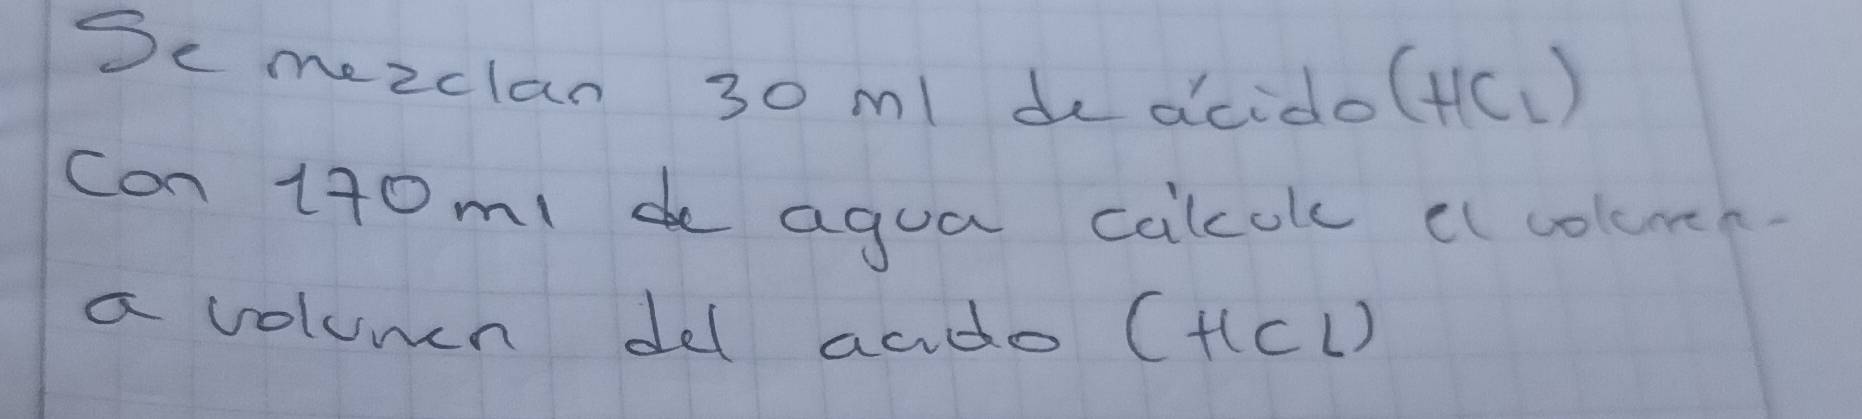 Se mezclan 30 ml de ácido (HCL)
Con 170 ml de agua cálcule el volumen -
a volumen del acido (HCL)